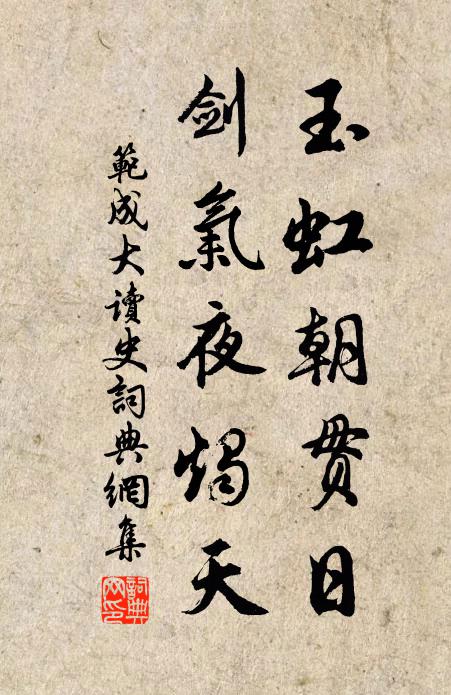 玉虹朝贯日
剑氣夜燭天
範成大讀史詞典網集
詞典
网印